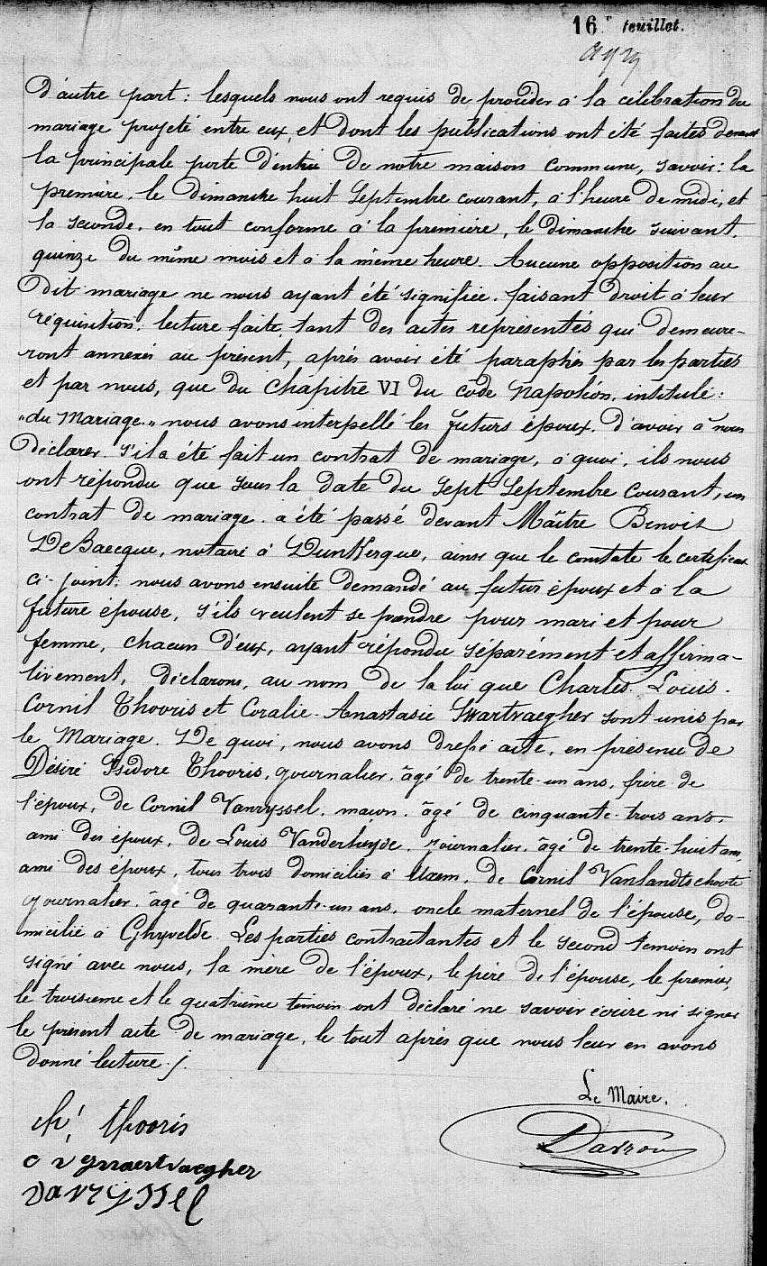 16e feuillet.
d'autre part: lesquels nous ont requis de procéder à la célébration du
mariage projeté entre eux, et dont les publications ont été faites devant
la principale porte d'entrée de notre maison commune, savoir: la
première, le dimanche huit Septembre courant, à l'heure de midi, et
la seconde, en tout conforme à la première, le dimanche suivant,
quinze du même mois et à la même heure. Aucune opposition au
dit mariage ne nous ayant été signifiée, faisant droit à leur
réquisition, lecture faite, tant des actes représentés qui demeure-
ront annexés au présent, après avoir été paraphés par les parties
et par nous, que du Chapitre VI du Code Napoléon, intitulé:
"du Mariage" nous avons interpellé les futurs époux, d'avoir à nous
déclarer s'il a été fait un contrat de mariage, à quoi, ils nous
ont répondu que sous la date du sept Septembre courant, un
contrat de mariage a été passé devant Maître Benoit
DeBaecque, notaire à Dunkerque, ainsi que le constate le certificat
ci-joint: nous avons ensuite demandé au futur époux et à la
future épouse, s'ils veulent se prendre pour mari et pour
femme, chacun d'eux, ayant répondu séparément et affirma-
tivement, déclarons, au nom de la loi que Charles Louis
Cornil Thooris et Coralie Anastasie Swartvaegher sont unis par
le Mariage. De quoi, nous avons dressé acte, en présence de
Désiré Isidore Thooris, journalier, âgé de trente-un ans, frère de
l'époux, de Cornil Vanryssel, maçon, âgé de cinquante-trois ans,
ami des époux, de Louis Vanderheyde, journalier, âgé de trente-huit ans,
ami des époux, tous trois domiciliés à Uxem, de Cornil Vanlandtschoote
journalier, âgé de quarante-un ans, oncle maternel de l'épouse, do-
micilié à Ghyvelde. Les parties contractantes et le second témoin ont
signé avec nous, la mère de l'époux, le père de l'épouse, le premier,
le troisième et le quatrième témoin ont déclaré ne savoir écrire ni signer
le présent acte de mariage, le tout après que nous leur en avons
donné lecture ./.
Le Maire,
Ch! thooris
Vanryssel